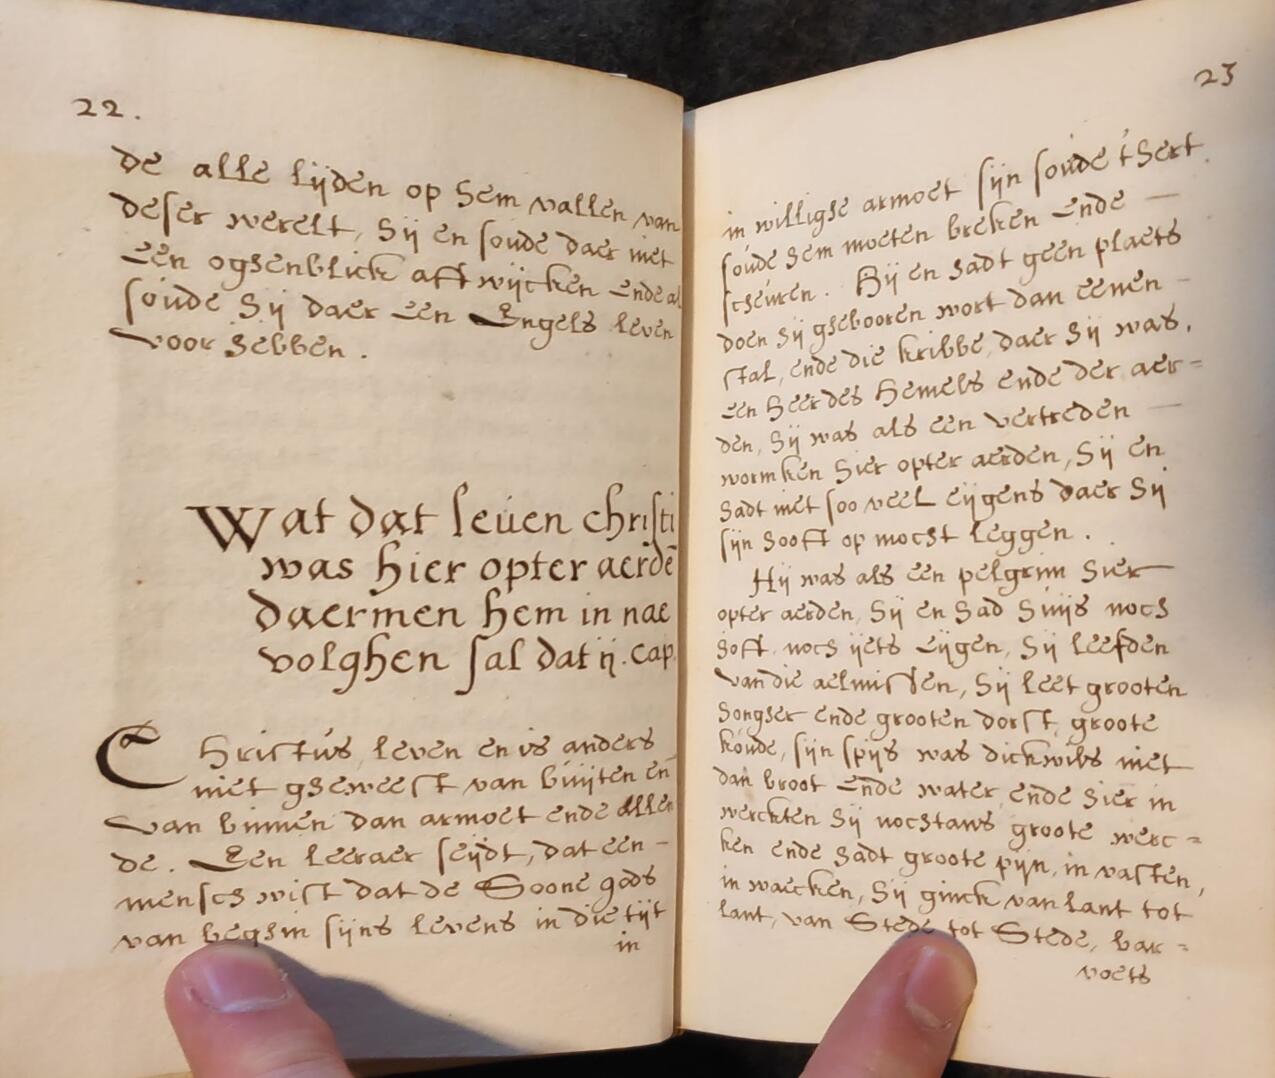 22.
de alle lijden op hem vallen van
deser werelt, hij en soude daer niet
een oghenblick aff wijcken ende al
soude hij daer een Engels leven
voor hebben.
Wat dat leuen christi
was hier opter aerdē
daermen hem in nae
volghen sal dat ij. cap.
Christus leven en is anders
niet gheweest van buijten en
van binnen dan armoet ende allen
de. Een leeraer seijdt, dat een -
mensch wist dat de Soone gods
van beghin sijns levens in die tijt
in
23
in willighe armoet sijn soude t'hert
soude hem moeten breken ende —
scheuren. Hij en hadt geen plaets
doen hij ghebooren wort dan eenen -
stal, ende die kribbe, daer hij was,
een heer des hemels ende der aer=
den, hij was als een vertreden —
wormken hier opter aerden, hij en
hadt niet soo veel eijgens daer hij
sijn hooft op mocht leggen.
Hij was als een pelgrim hier
opter aerden, hij en had huijs noch
hoff noch ijets eijgen, hij leefden
van die aelmissen, hij leet grooten
hongher ende grooten dorst, groote
koude, sijn spijs was dickwils niet
dan broot ende water, ende hier in
werckten hij nochtans groote werc=
ken ende hadt groote pijn, in vasten,
in waecken, hij ginck van lant tot
lant, van Stede tot Stede, bar=
voets